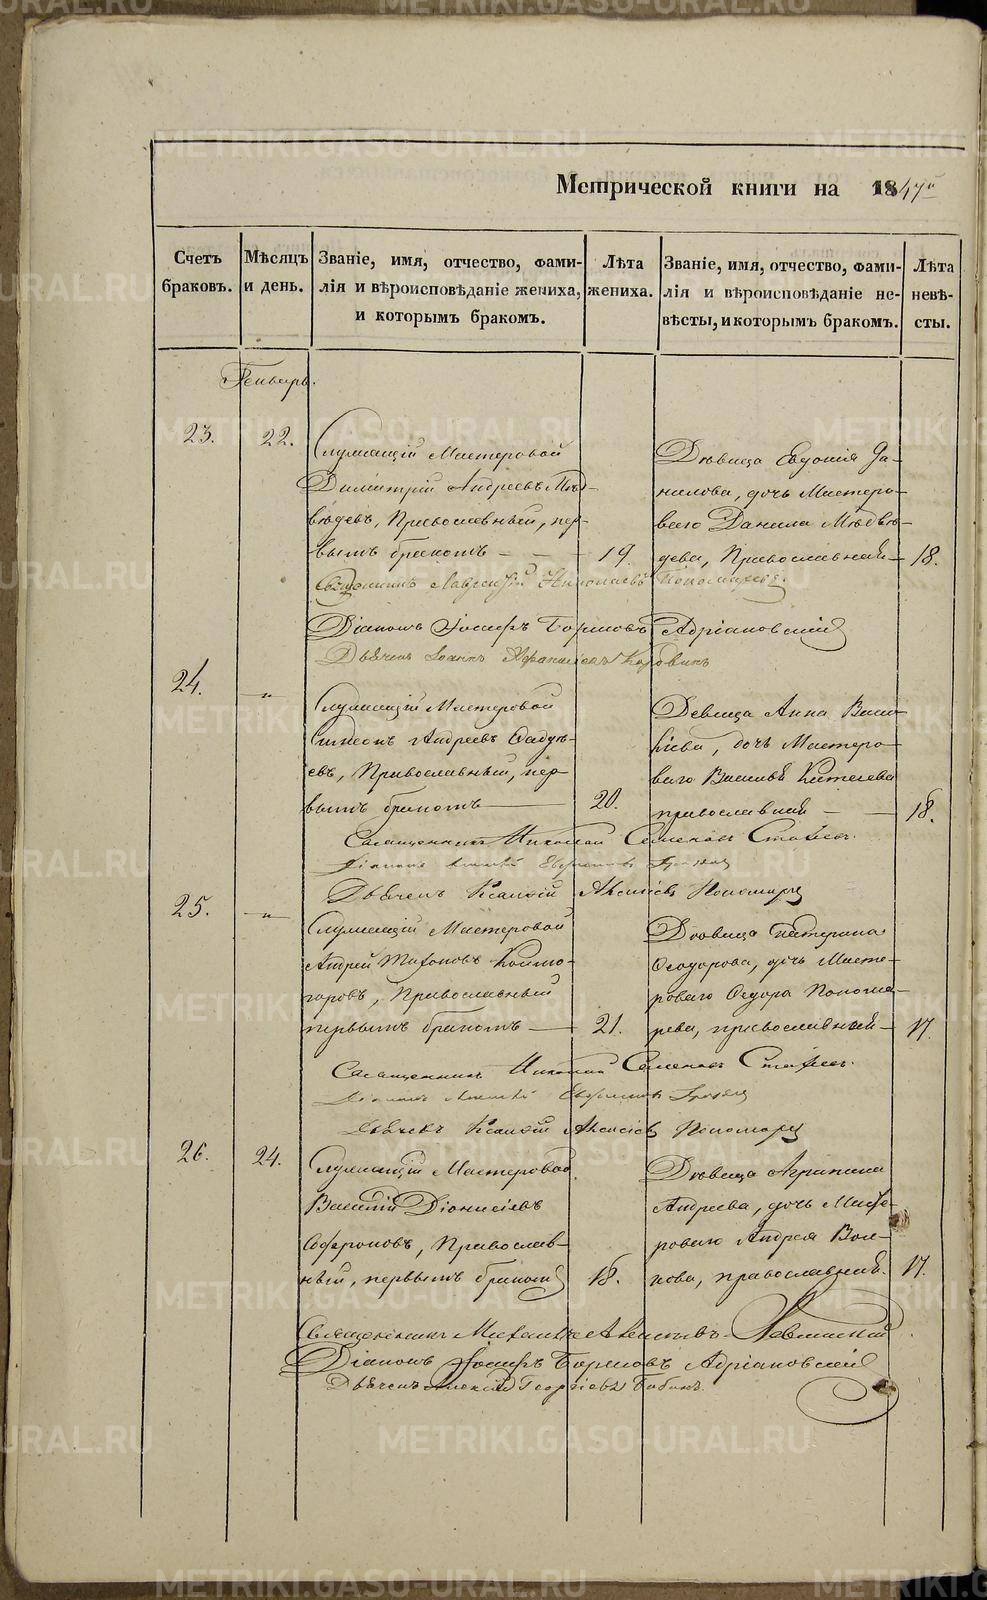 Метрической книги на 1847й
Счетъ браковъ.
Мѣсяцъ и день.
Званіе, имя, отчество, фами-
лія и вѣроисповѣданіе жениха,
и которымъ бракомъ.
Лѣта жениха.
Званіе, имя, отчество, фами-
лія и вѣроисповѣданіе не-
вѣсты, и которымъ бракомъ.
Лѣта невѣ-
сты.
Генварь.
23.
22.
Служащій Мастеровой
Димитрій Андреевъ Мѣд-
вѣдевъ, Православный, пер-
вымъ бракомъ
19.
Дѣвица Евдокія Да-
нилова, дочь Мастеро-
ваго Данила Мѣдвѣ-
дева, Православная
18.
Священникъ Николаевъ Пономаревъ.
Діаконъ Іосифъ Борисовъ Адріановскій
Дьячекъ Іоаннъ Афанасіевъ Коровинъ
24.
"
Служащій Мастеровой
Симеонъ Андреевъ Фадѣ-
евъ, Православный, пер-
вымъ бракомъ
20.
Девица Анна Васи-
льева, дочь Мастеро-
ваго Василья
православная
18.
Священникъ Николай Семеновъ
Діаконъ
Дьячекъ Алексіевъ Пономаревъ
25.
"
Служащій Мастеровой
Андрей Тихоновъ Колмо-
горовъ, Православный
первымъ бракомъ
21.
Дѣвица Катерина
Ѳеодорова, дочь Масте-
роваго Ѳедора Понома-
рева, православная
17.
Священникъ Николай Семеновъ
Діаконъ
Дьячекъ Алексіевъ Пономаревъ
26.
24.
Служащій Мастеровой
Василій Діонисіевъ
Софроновъ, Православ-
ный, первымъ бракомъ
18.
Дѣвица Агрипина
Андреева, дочь Масте-
роваго Андрея Вол-
кова, православная.
17.
Священникъ Михаилъ
Діаконъ Іосифъ Борисовъ Адріановскій
Дьячекъ Алексій Георгіевъ Бабинъ.
METRIKI.GASO-URAL.RU